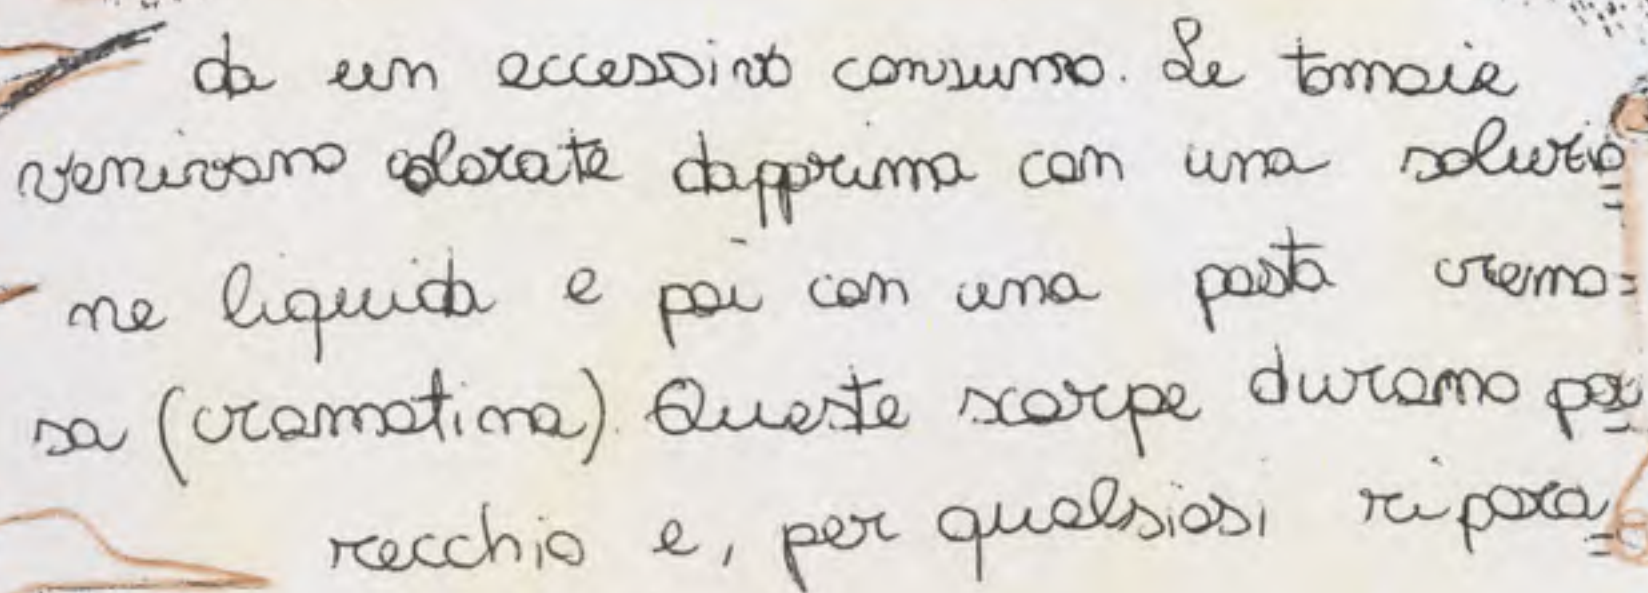 da un eccessivo consumo. Le tomaie
venivano colorate dapprima con una soluzio=
ne liquida e poi con una pasta cremo=
sa (cromatina). Queste scarpe durano pa=
recchio e, per qualsiasi ripara=